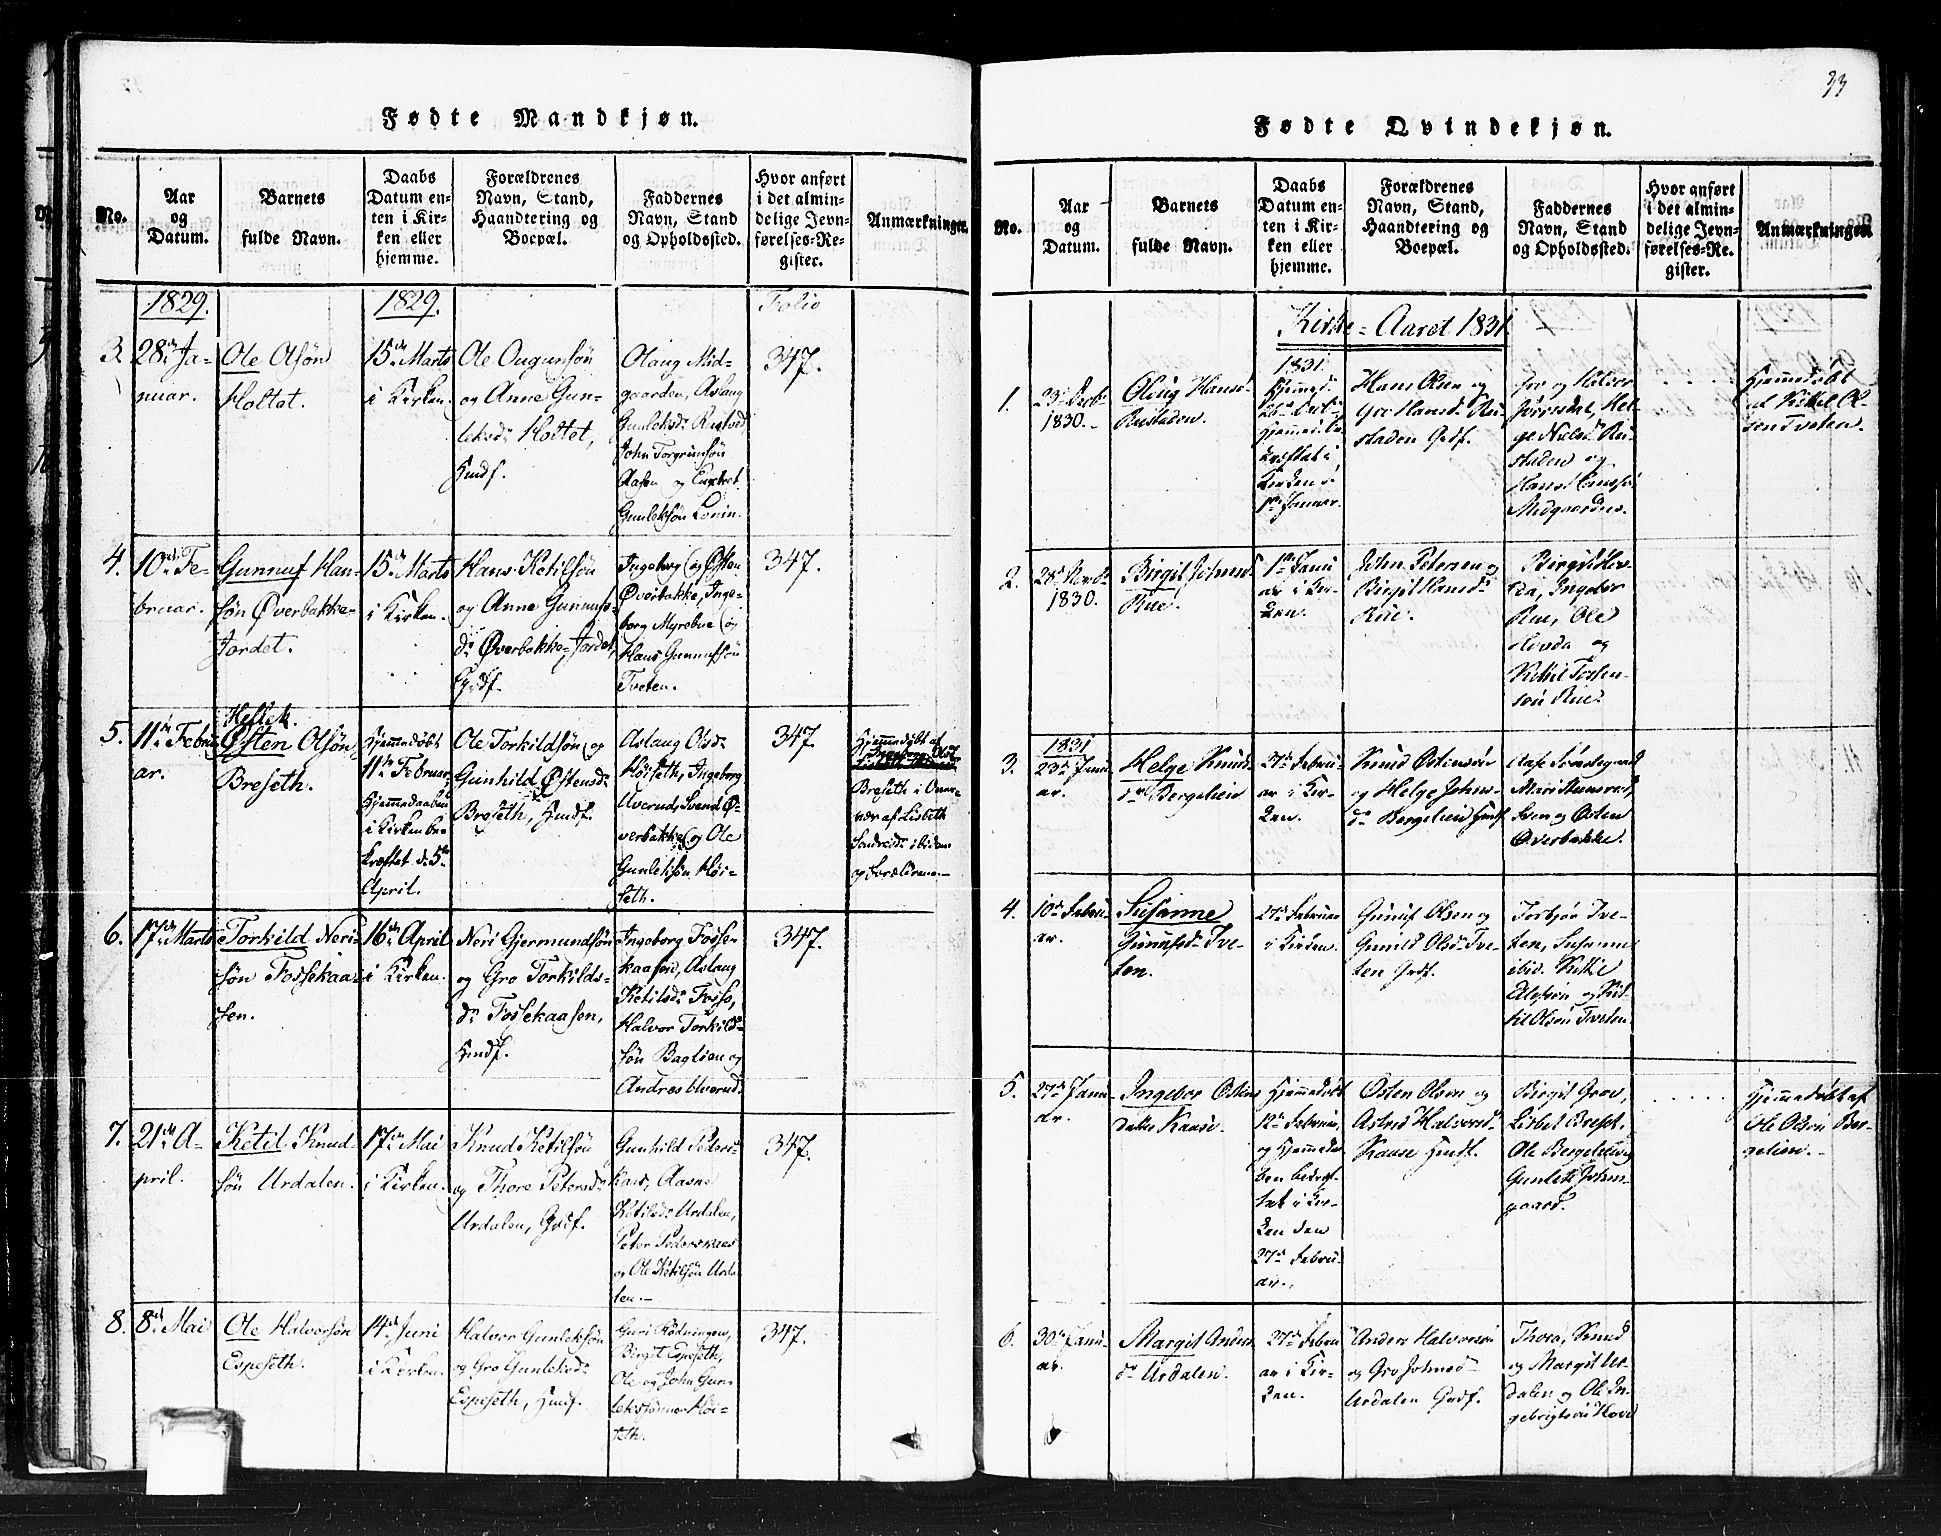 33
Fødte Mandkjøn.
No.
Aar
og
Datum.
Barnets
fulde Navn.
Daabs
Datum en-
ten i Kir-
ken eller
hjemme.
Forældrenes
Navn, Stand,
Haandtering og
Boepæl.
Faddernes
Navn, Stand
og Opholdssted.
Hvor anført
i det almin-
delige Jevn-
førelses-Re-
gister.
Anmærkninger.
1829.
1829.
Folio
3.
28de Ja-
nuar.
Ole Olsøn
Holtet.
15de Marts
i Kirken.
Ole Ougunsøn
og Anne Gun-
leksdr Holtet,
Hmdf.
Olaug Mid-
gaarden, Aslaug
Gunleksdr
John Torgrimsøn
Aasen og
Gunleksøn
347.
4.
10de Fe-
bruar.
Gunnuf Han-
søn Øverbakke-
Jordet.
15de Marts
i Kirken.
Hans Ketilsøn
og Anne Gunnufs-
dr Øverbakke-Jordet,
Grdf.
Ingeborg og Østen
Øverbakke, Inge-
borg Myrebue og
Hans Gunnufsøn
Tveten.
347.
5.
11te Febru-
ar.
Hellek.
Østen Olsøn
Breseth.
Hjemmedøbt
11te Februar
Hjemmedaaben
i Kirken be-
kræftet d. 5te
April.
Ole Torkildsøn og
Gunhild Østensdr
Breseth, Hmdf.
Aslaug Olsdr
Høiseth, Ingeborg
Uverud, Svend Ø-
verbakke og Ole
Gunleksøn Høi-
seth.
347.
Hjemmedøbt af
Breseth i Overvær
af Lisbeth
ibidem
og Forældrene.
6.
17de Marts
Torkild Neri-
søn Fossekaa-
sen.
16de April
i Kirken.
Neri Gjermundsøn
og Gro Torkilds-
dr Fossekaasen,
Hmdf.
Ingeborg Fosse-
kaasen, Aslaug
Ketilsdr Fosse,
Halvor Torkild-
søn Baglien og
Andres Uverud.
347.
7.
21de A-
pril.
Ketil Knud-
søn Urdalen.
17de Mai
i Kirken.
Knud Ketilsøn
og Thore Petersdr
Urdalen, Grdf.
Gunhild Peders-
Aasne
Ketilsdr Urdalen,
Peter
og Ole Ketilsøn Urda-
len.
347.
8.
8de Mai
Ole Halvorsøn
Espeseth.
14de Juni
i Kirken.
Halvor Gunleksøn
og Gro Gunleksdr
Espeseth, Hmdf.
Guri Rødningen,
Birgit Espeseth,
Ole og John Gun-
lekssønner Høi-
seth.
347.
Fødte Qvindekjøn.
No.
Aar
og
Datum.
Barnets
fulde Navn.
Daabs
Datum en-
ten i Kir-
ken eller
hjemme.
Forældrenes
Navn, Stand,
Haandtering og
Boepæl.
Faddernes
Navn, Stand
og Opholdssted.
Hvor anført
i det almin-
delige Jevn-
førelses-Re-
gister.
Anmærkninger.
Kirke-Aaret 1831.
1831.
1.
1830.
Hansdr
Rustaden.
Kirken
1ste Januar.
Hans Olsen og
Gro Hansdr Ru-
staden Grdf.
og Halvor
staden og
Hans
Midgaarden.
Hjemmedøbt
af Kittil Ol-
sen Tveten.
2.
1830.
Birgit Johnsd
Rue.
1ste Janu-
ar i Kir-
ken.
John Petersen og
Birgit Hansdr
Rue.
Birgit
Ingebor
Rue, Ole
Hovda og
Kittil Tosten-
søn Rue.
1831
3.
23de Janu-
ar.
Helge Knuds-
dr Bergelien
27de Febru-
ar i Kir-
ken.
Knud Østensøn
og Helge Johns-
dr Bergelien Hmdf.
Sven og Østen
Øverbakke.
4.
10de Febru-
ar.
Susanne
Gunufsdr Tve-
ten.
27de Februar
i Kirken.
Gunuf Olsen og
Gunild Olsdr Tve-
ten Grdf.
Torbjør Tve-
ten, Susanne
ibid. Kittil
og Kit-
til Olsøn Tveten.
5.
27de Janu-
ar.
Ingebor Østens
datter Kaase.
Hjemmedøbt
12te Februar,
og Hjemmedaa-
ben bekræf-
tet i Kir-
ken den
27de Febru-
ar.
Østen Olsen og
Astrid Halvorsd
Kaase Hmdf.
Birgit Grov,
Lisbet Breset,
Ole Bergelien og
Gunlek
gaard.
Hjemmedøbt af
Ole Olsøn Ber-
gelien.
6.
30te Janu-
ar.
Margit Anders-
dr Urdalen.
27de Febru-
ar i Kir-
ken.
Anders Halvorsøn
og Gro Johnsdr
Urdalen Grdf.
Thora, Knud
og Margit Ur-
dalen og Ole In-
gebrigtsøn Hovd